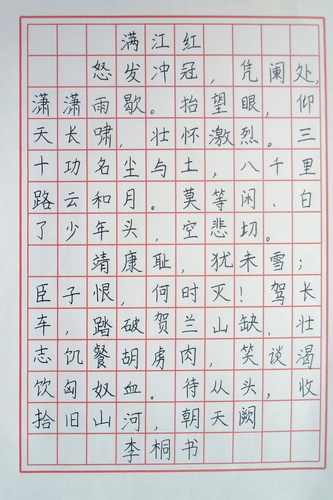 满江红
怒发冲冠，凭阑处，
潇潇雨歇。抬望眼，仰
天长啸，壮怀激烈。三
十功名尘与土，八千里
路云和月。莫等闲、白
了少年头，空悲切。
靖康耻，犹未雪；
臣子恨，何时灭！驾长
车，踏破贺兰山缺，壮
志饥餐胡虏肉，笑谈渴
饮匈奴血。待从头，收
拾旧山河，朝天阙
李桐书